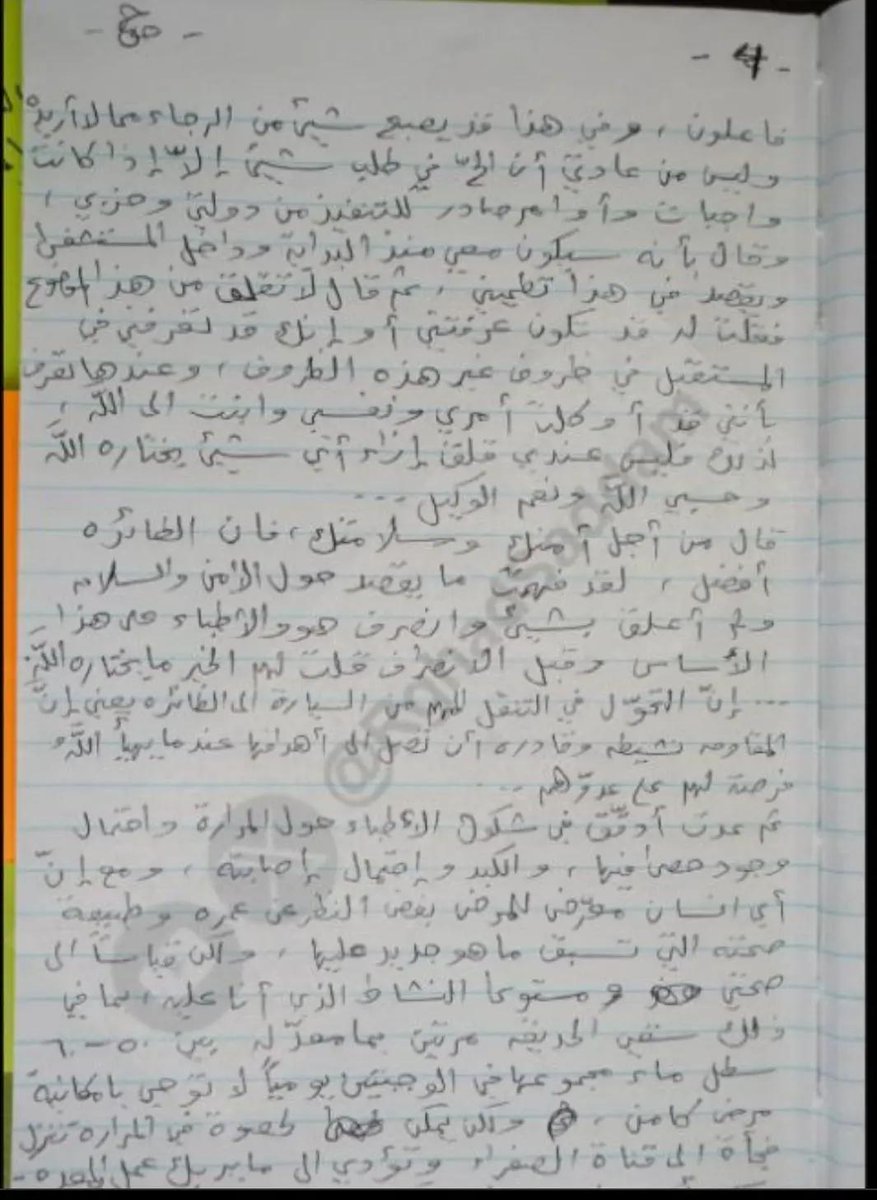 - ج -
- 4 -
فاعلون ، وفي هذا قد يصبح شيئ من الرجاء مما لا أريده
وليس من عادتي أن ألحّ في طلب شيئ إلاّ إذا كانت
واجبات وأوامر صادر للتنفيذ من دولتي وحزبي ،
وقال بأنه سيكون معي منذ البداية وداخل المستشفى
ويقصد في هذا تطميني ، ثم قال لا تقلق من هذا الموضوع
فقلت له قد تكون عرفتني أو إنك قد تعرفني في
المستقبل في ظروف غير هذه الظروف ، وعندها تعرف
بأنني قد أوكلت أمري ونفسي وابنت الى اللّه ،
لذلك فليس عندي قلق إزاء أي شيئ يختاره اللّه
وحسبي اللّه ونعم الوكيل ...
قال من أجل أمنك وسلامتك ، فان الطائره
أفضل ، لقد فهمت ما يقصد حول الأمن والسلامه
ولم أعلق بشيئ وانصرف هو والأطباء على هذا
الأساس وقبل الانصراف قلت لهم الخير ما يختاره اللّه
... إنّ التحوّل في التنقل من السيارة الى الطائره يعني إنّ
المقاومه نشيطه وقادره أن تصل الى أهدافها عندما يهيأ اللّه
فرصة لهم على عدوّهم ..
ثم عدت أدقّق في شكوك الأطباء حول المرارة واحتمال
وجود حصى فيها ، والكبد وإحتمال إصابته ، ومع إنّ
أي انسان معرّض للمرض بغض النظر عن عمره وطبيعة
صحته التي تسبق ما هو جديد عليها ، ولكن قياساً الى
صحتي ومستوى النشاط الذي أنا عليه ، بما في
ذلك سقي الحديقه مرتين بما معدّله بين ٥٠ - ٦٠
سطل ماء مجموعها في الوجبتين يومياً لا توحي بامكانية
مرض كامن ، ولكن يمكن لحصوة في المراره تنزل
فجأة الى قناة الصفراء وتؤدي الى ما يربك عمل المعده -
@RghadSaddam